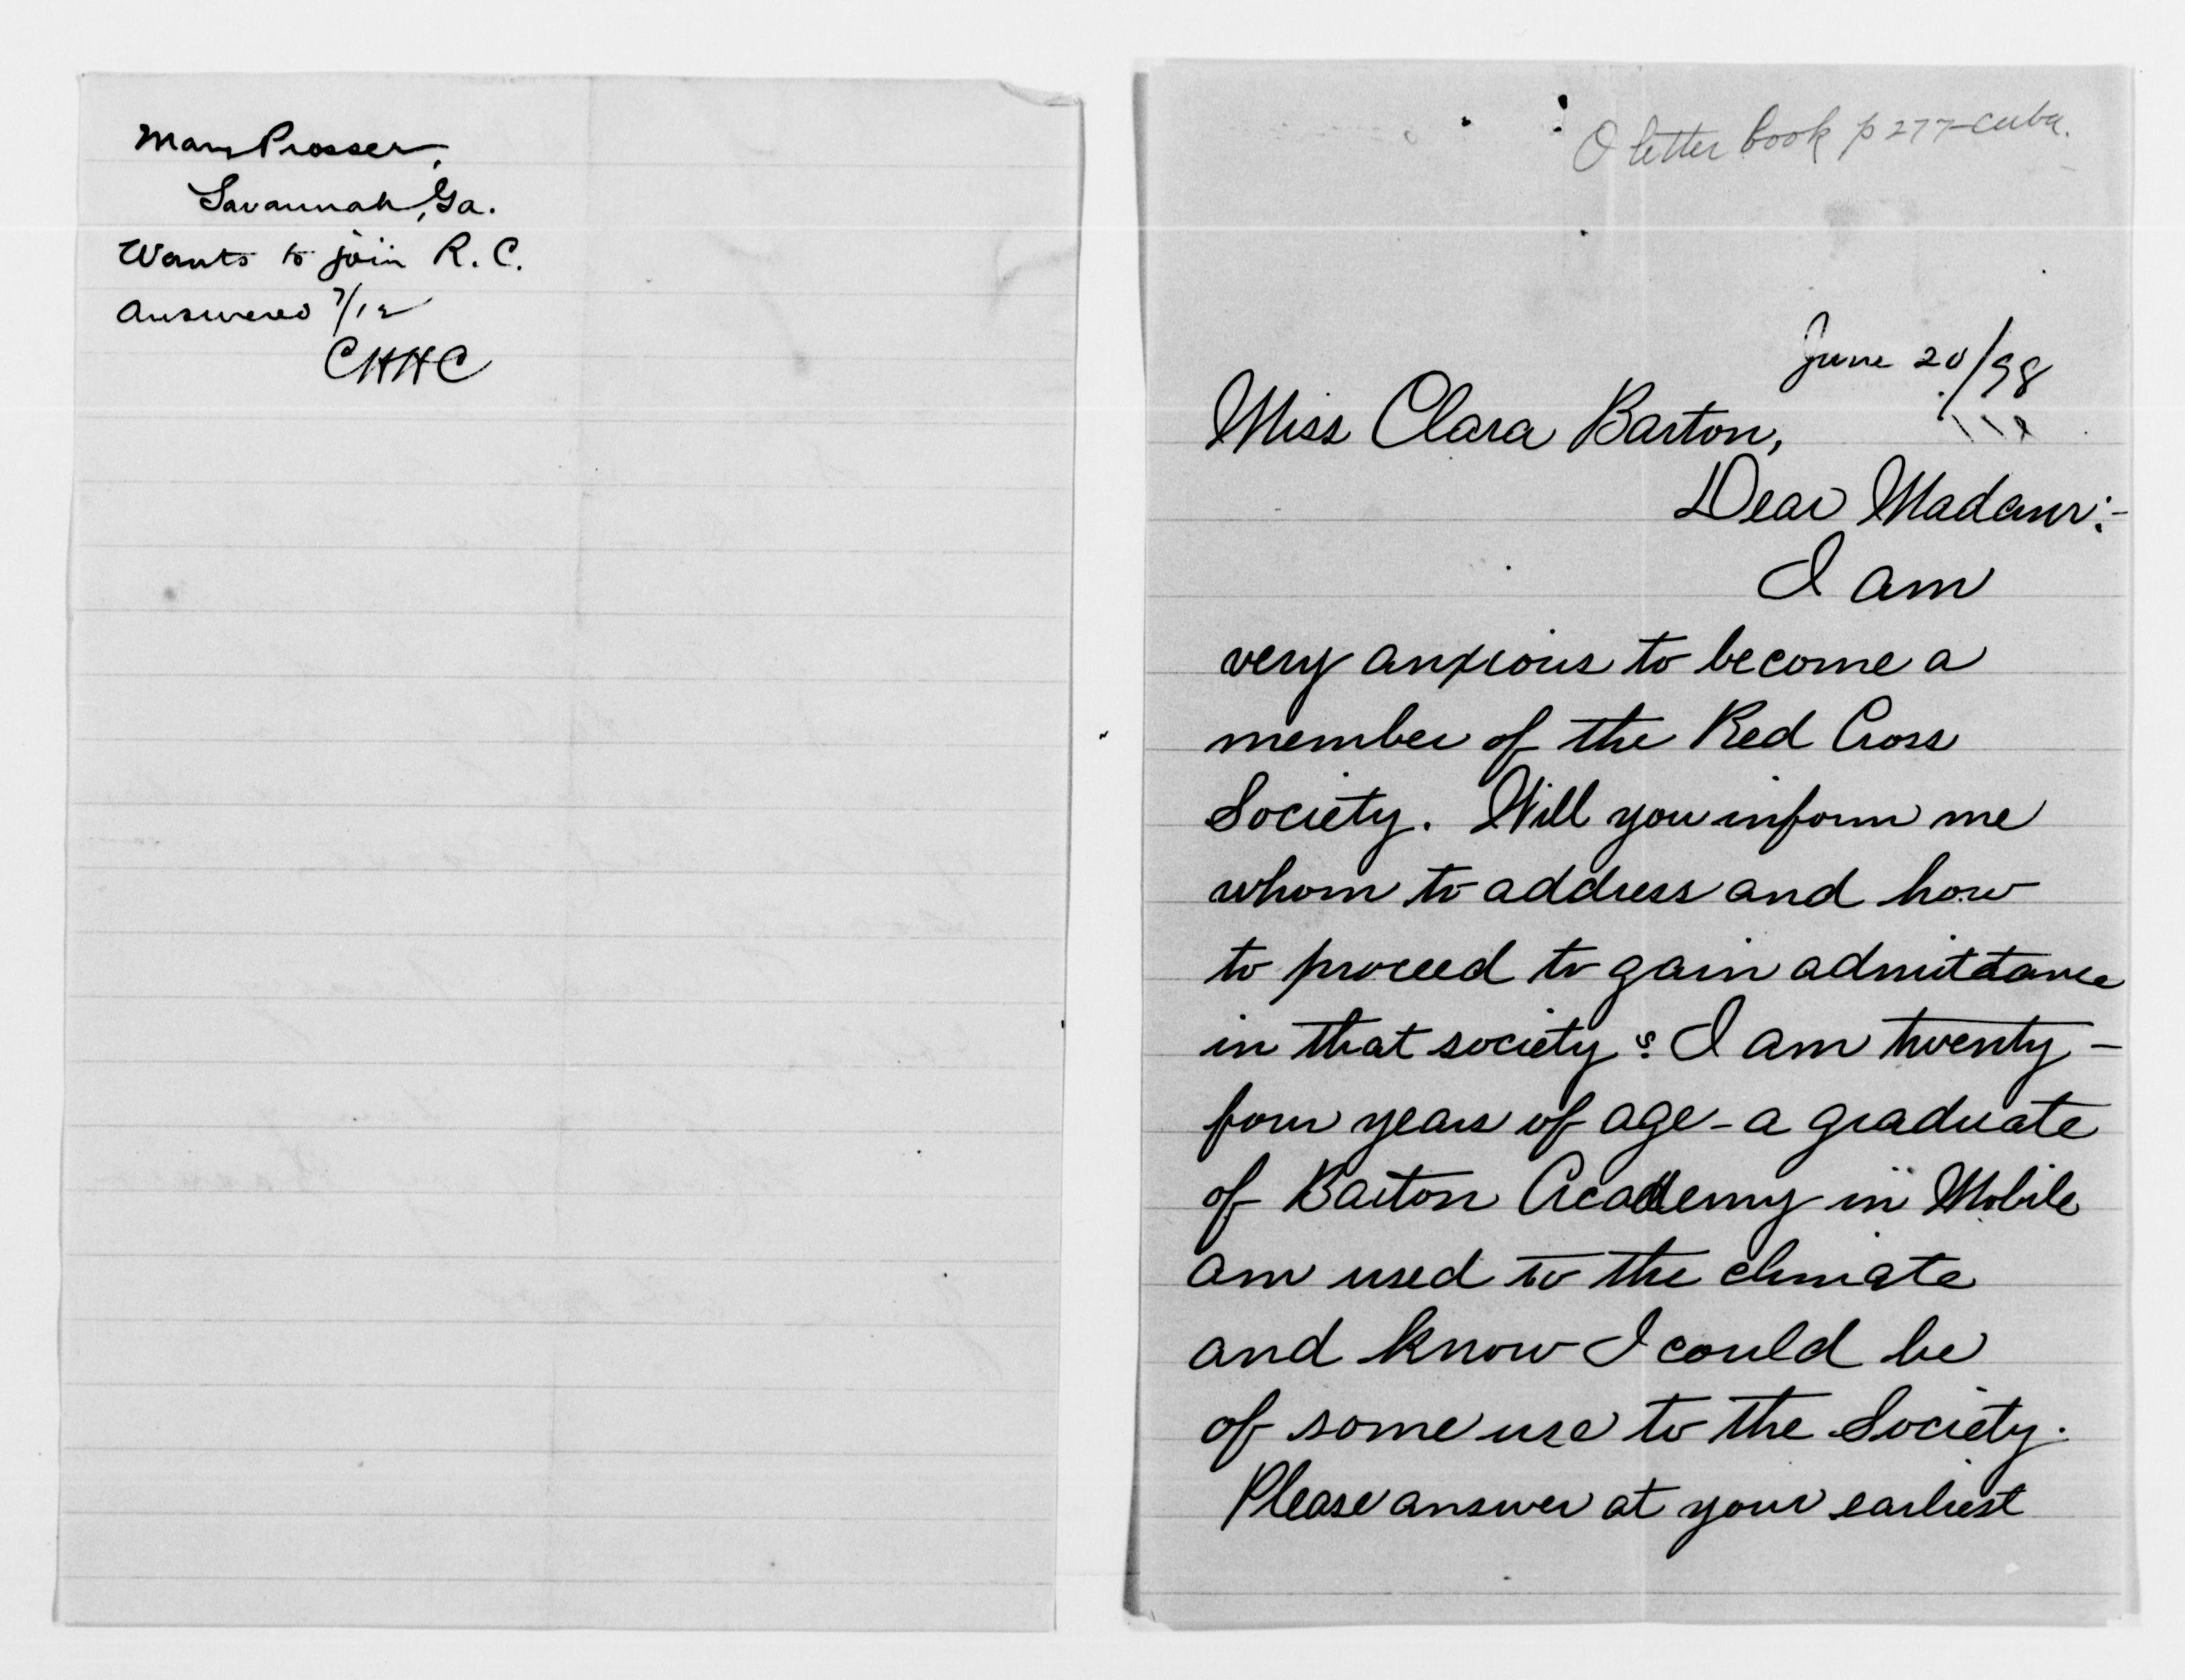 Mary Prosser,
Savannah, Ga.
Wants to join R. C.
Answered 7/12
CHHC
O letter book p 277-Cuba.
June 20/98
Miss Clara Barton,
Dear Madam:-
I am
very anxious to become a
member of the Red Cross
Society. Will you inform me
whom to address and how
to proceed to gain admittance
in that society? I am twenty-
four years of age - a graduate
of Barton Academy in Mobile
am used to the climate
and know I could be
of some use to the Society.
Please answer at your earliest